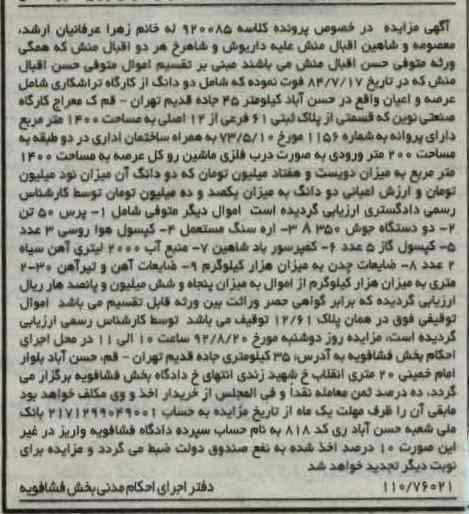 آگهی مزایده در خصوص پرونده کلاسه ۹۲۰۰۸۵ له خانم زهرا عرفانیان ارشد،
معصومه و شاهین اقبال منش علیه داریوش و شاهرخ هر دو اقبال منش که همگی
ورثه متوفی حسن اقبال منش می باشند مبنی بر تقسیم اموال متوفی حسن اقبال
منش که در تاریخ ۸۴/۷/۱۷ فوت نموده که شامل دو دانگ از کارگاه تراشکاری شامل
عرصه و اعیان واقع در حسن آباد کیلومتر ۴۵ جاده قدیم تهران - قم ک معراج کارگاه
صنعتی نوین که قسمتی از پلاک ثبتی ۶۱ فرعی از ۱۲ اصلی به مساحت ۱۴۰۰ متر مربع
دارای پروانه به شماره ۱۱۵۶ مورخ ۷۳/۵/۱۰ به همراه ساختمان اداری در دو طبقه به
مساحت ۲۰۰ متر ورودی به صورت درب فلزی ماشین رو کل عرصه به مساحت ۱۴۰۰
متر مربع به میزان دویست و هفتاد میلیون تومان که دو دانگ آن میزان نود میلیون
تومان و ارزش اعیانی دو دانگ به میزان یکصد و ده میلیون تومان توسط کارشناس
رسمی دادگستری ارزیابی گردیده است اموال دیگر متوفی شامل ۱- پرس ۵۰ تن
۲- دو دستگاه جوش ۳۵۰ A ۳- اره سنگ مستعمل ۴- کپسول هوا روسی ۳ عدد
۵- کپسول گاز ۵ عدد ۶- کمپرسور باد شاهین ۷- منبع آب ۲۰۰۰ لیتری آهن سیاه
۲ عدد ۸- ضایعات چدن به میزان هزار کیلوگرم ۹- ضایعات آهن و تیرآهن ۳۰-۲
متری به میزان هزار کیلوگرم از اموال به میزان پنجاه و شش میلیون و پانصد هزار ریال
ارزیابی گردیده که برابر گواهی حصر وراثت بین ورثه قابل تقسیم می باشد اموال
توقیفی فوق در همان پلاک ۱۲/۶۱ توقیف می باشد توسط کارشناس رسمی ارزیابی
گردیده است، مزایده روز دوشنبه مورخ ۹۲/۸/۲۰ ساعت ۱۰ الی ۱۱ در محل اجرای
احکام بخش فشافویه به آدرس: ۳۵ کیلومتری جاده قدیم تهران - قم، حسن آباد بلوار
امام خمینی ۲۰ متری انقلاب خ شهید زندی انتهای خ دادگاه بخش فشافویه برگزار می
گردد، ده درصد ثمن معامله نقداً و فی المجلس از خریدار اخذ و وی مکلف خواهد بود
مابقی آن را ظرف مهلت یک ماه از تاریخ مزایده به حساب ۲۱۷۱۲۹۹۰۴۹۰۰۱ بانک
ملی شعبه حسن آباد ری کد ۸۱۸ به نام حساب سپرده دادگاه فشافویه واریز در غیر
این صورت ۱۰ درصد اخذ شده به نفع صندوق دولت ضبط می گردد و مزایده برای
نوبت دیگر تجدید خواهد شد
۱۱۰/۷۶۰۲۱ دفتر اجرای احکام مدنی بخش فشافویه